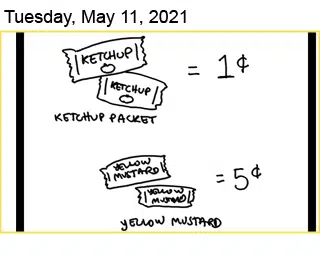 Tuesday, May 11, 2021
KETCHUP
= 1¢
KETCHUP
KETCHUP PACKET
YELLOW
MUSTARD
= 5¢
YELLOW
MUSTARD
YELLOW MUSTARD